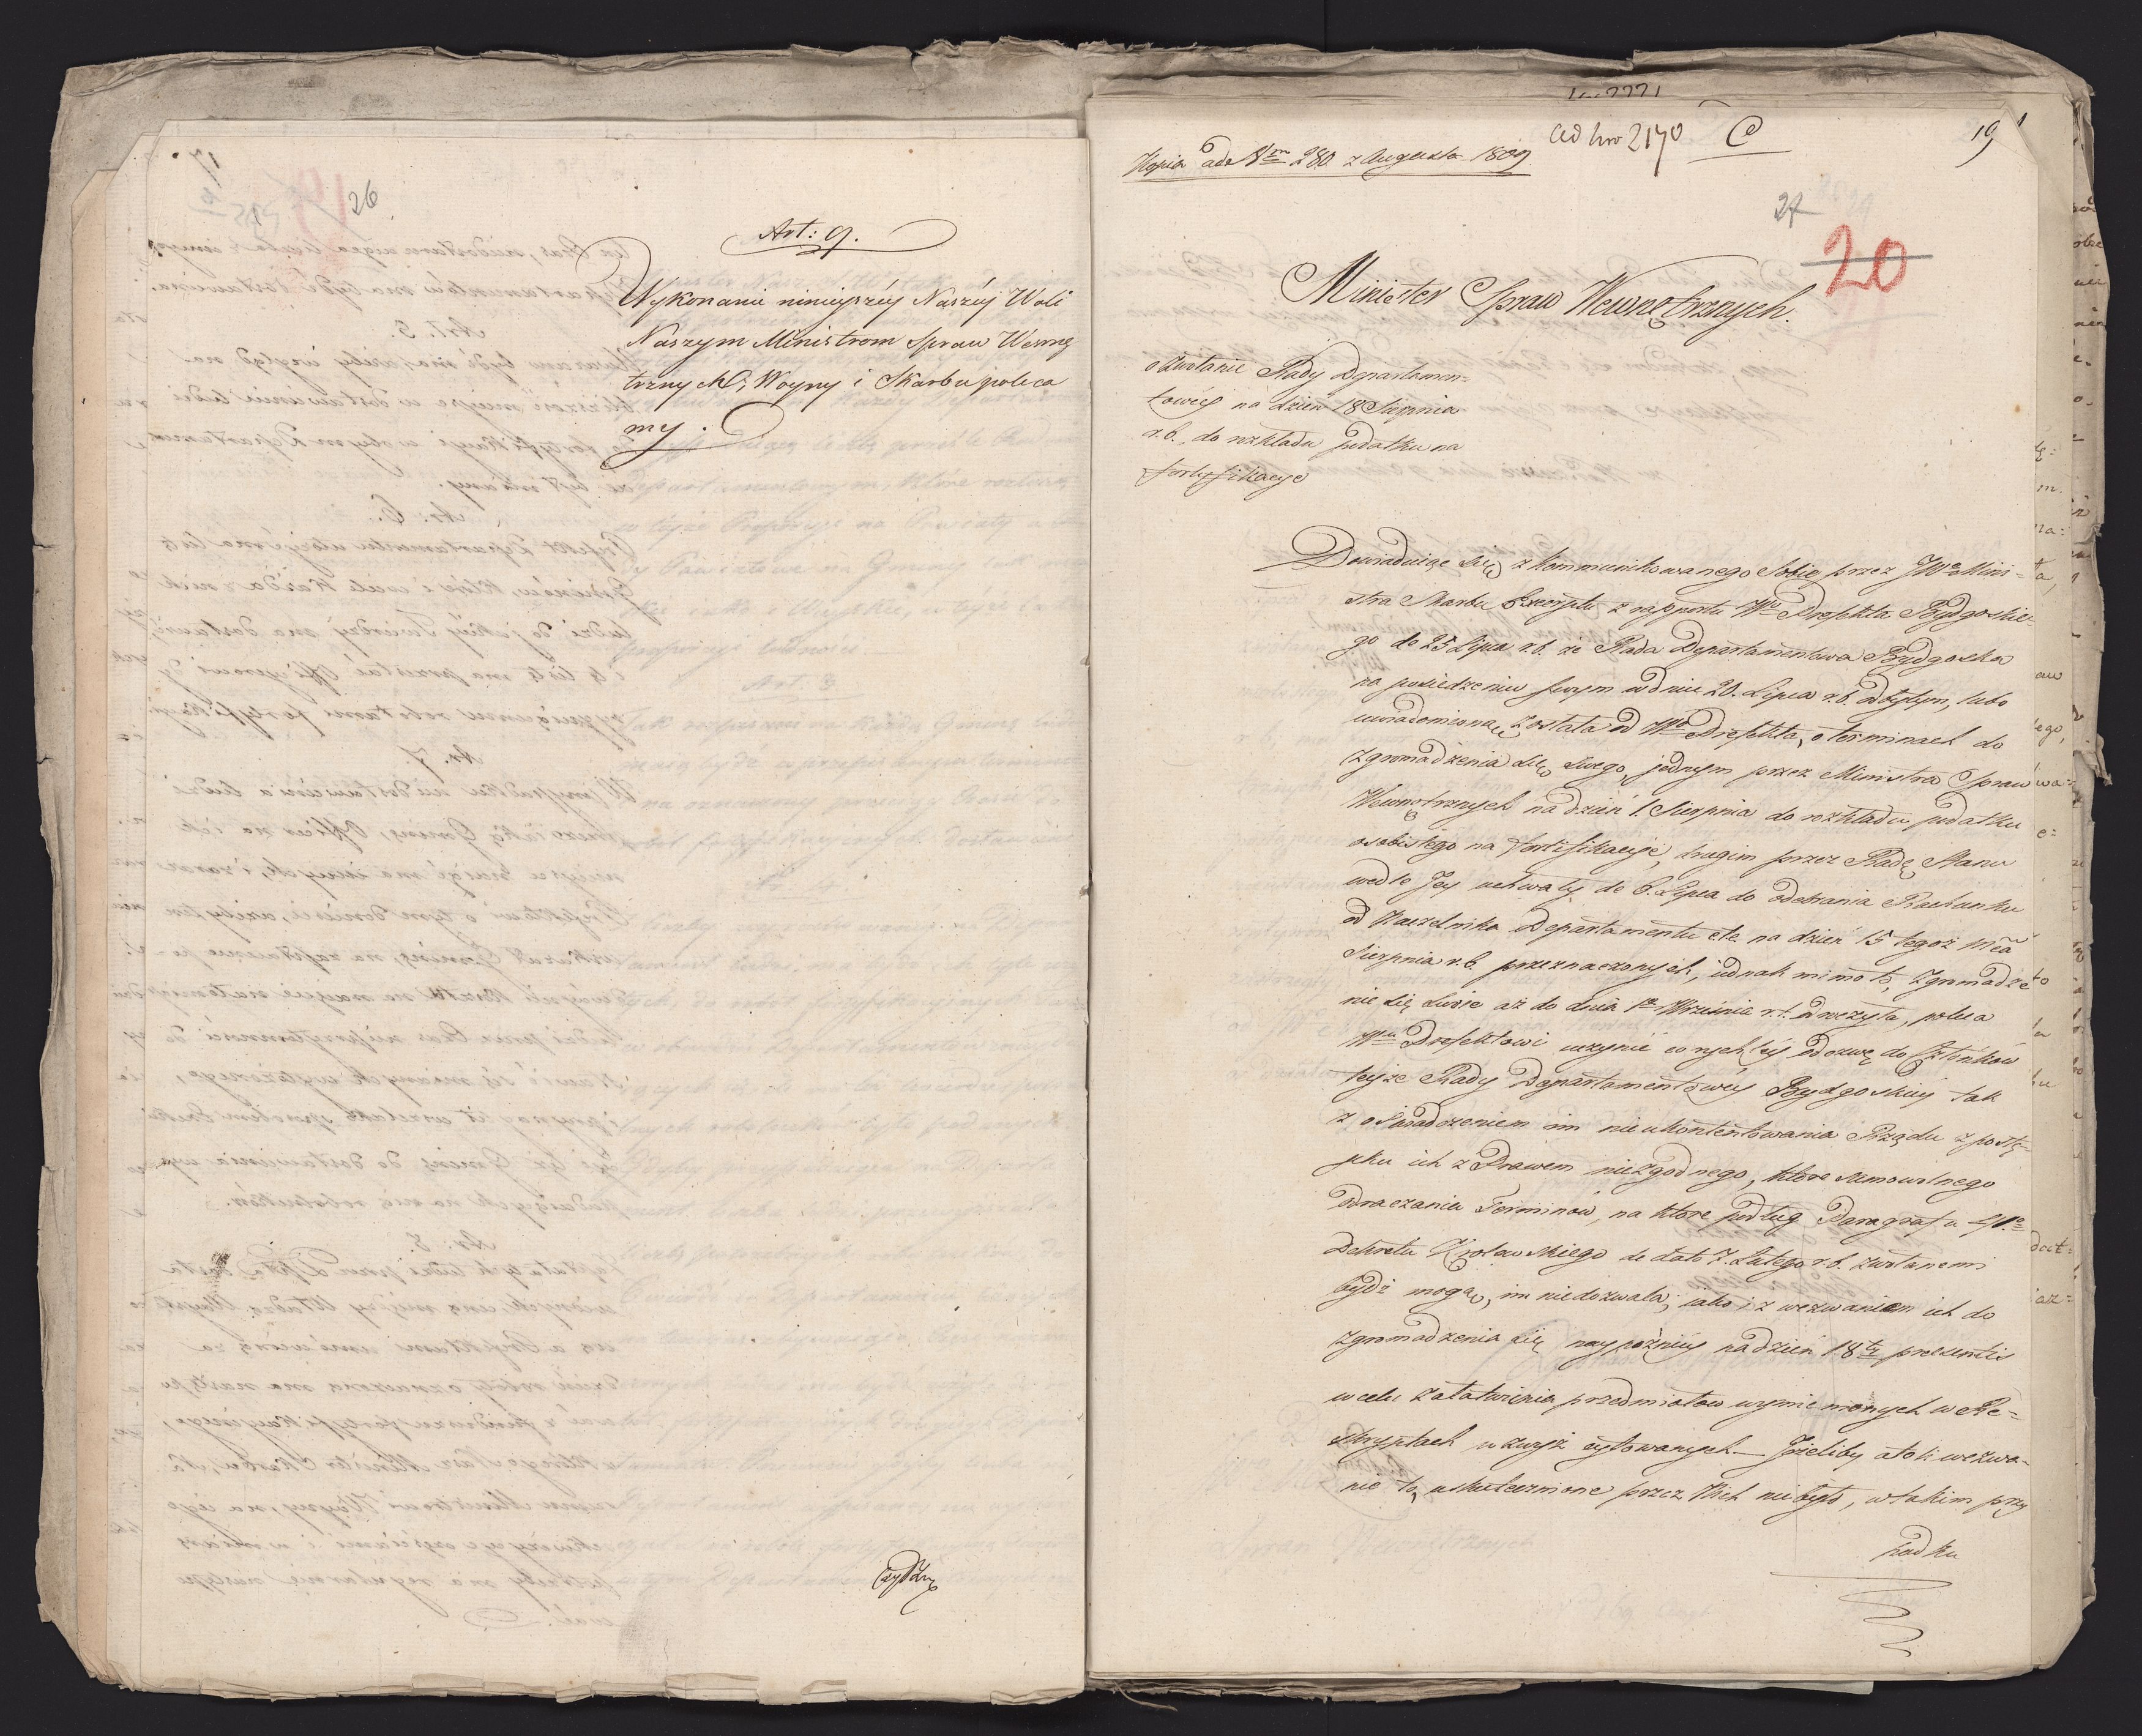 26
Art: 9.
Wykonanie ninieyszéy Naszéy Woli
Naszym Ministrom Spraw Wewnę
trznych, Woyny i Skarbu poleca
my.
ad Nro 2170
C
19
Kopia ade Nrm 280 z Augusta 1809
27
20
Minister Spraw Wewnętrznych.
o zwołanie Rady Departamen-
towéy na dzień 18 Sierpnia
r.b. do rozkładu podatku na
fortyfikacye
Dowiaduiąc się z kommunikowanego Sobie przez JWo Mini-
stra Skarbu Excerptu z rapportu Wo Prefekta Bydgoskie-
go de 25 Lipca r.b. że Rada Departamentowa Bydgoska
na posiedzeniu swym w dniu 20. Lipca r.b. odbytym, lubo
uwiadomiona została od Wo Prefekta, o terminach do
zgromadzenia się swego jednym przez Ministra Spraw
Wewnętrznych na dzień 1. Sierpnia do rozkładu podatku
osobistego na fortifikacyje, drugim przez Radę Stanu
wedle Jey uchwały de 6. Lipca do odebrania Rachunku
od Naczelnika Departamentu etc na dzień 15 tegoż mca
Sierpnia r.b. przeznaczonych, iednak mimo to, zgromadze
nie się swoie aż do dnia 1o Września r.b. odroczyła, poleca
Wmu Prefektowi uczynić co rychléy odezwę do Członków
teyże Rady Departamentowéy Bydgoskiéy tak
z oświadczeniem im nieukontentowania Rządu z postę-
pku ich z Prawem niezgodnego, które samowolnego
odraczania Terminów, na które podług Paragrafu 41o
Dekretu Królewskiego de dato 7. Lutego r.b. zwołanemi
bydź mogą, im niedozwala, iako i z wezwaniem ich do
zgromadzenia się naypóźniéy na dzień 18ty praesentis
w celu załatwienia przedmiotów wymienionych w Re-
skryptach wzwyż cytowanych — Jeżeliby atoli wezwa-
nie to, uskutecznione przez Nich nie było, w takim przy
padku